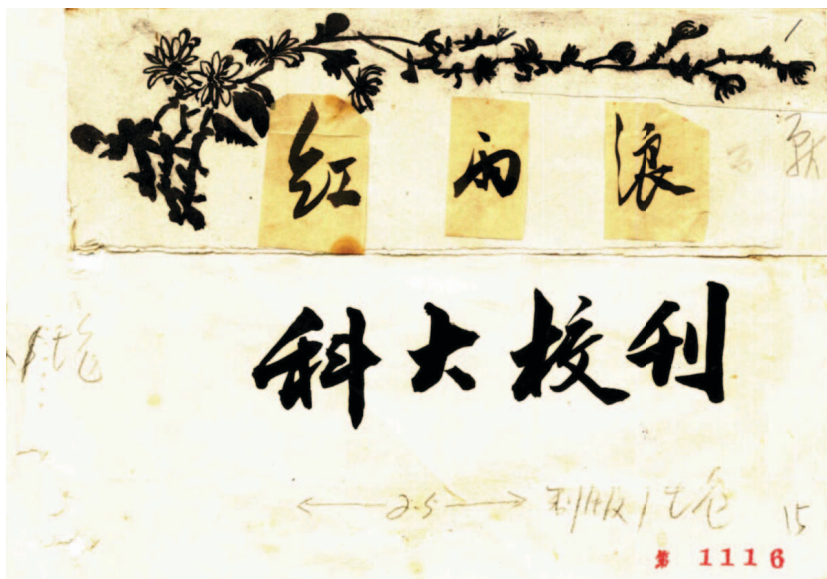 红雨浪
科大校刊
2.5
15
第 1116